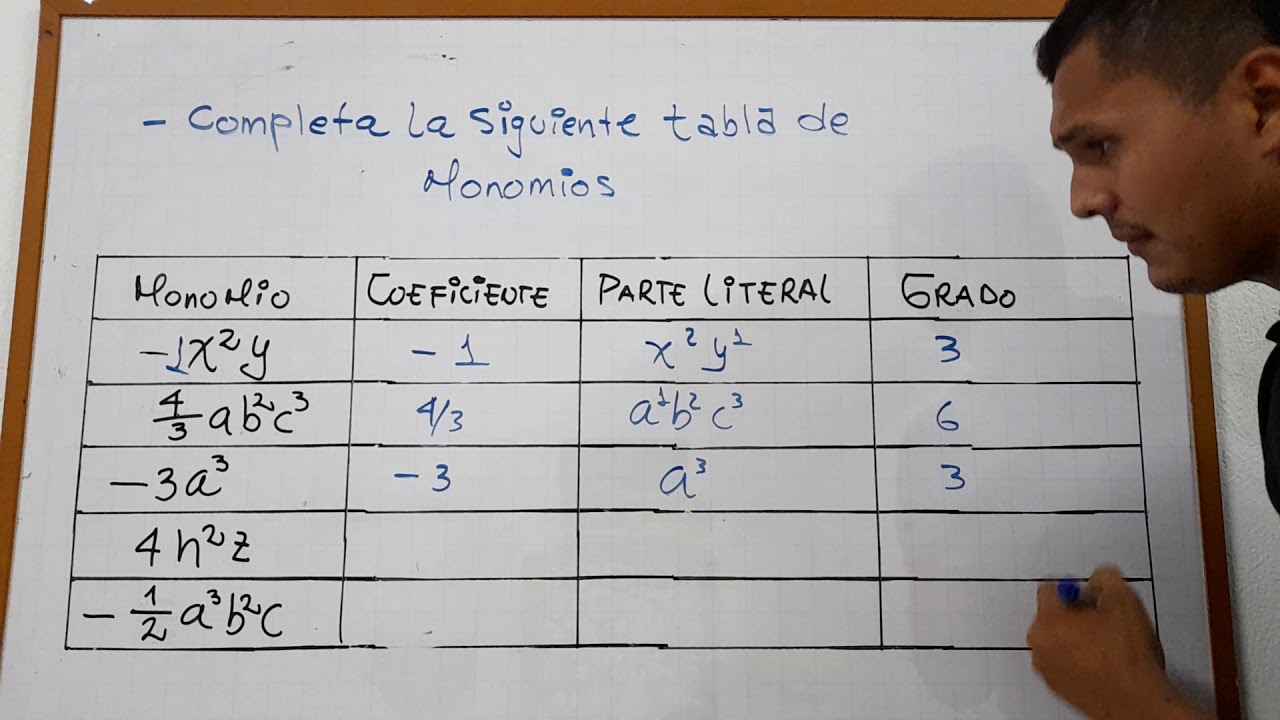 - Completa la siguiente tabla de
Monomios
Monomio COEFICIENTE PARTE LITERAL GRADO
-1x²y -1 x²y¹ 3
4/3 ab²c³ 4/3 a¹b²c³ 6
-3a³ -3 a³ 3
4h²z
-1/2 a³b²c